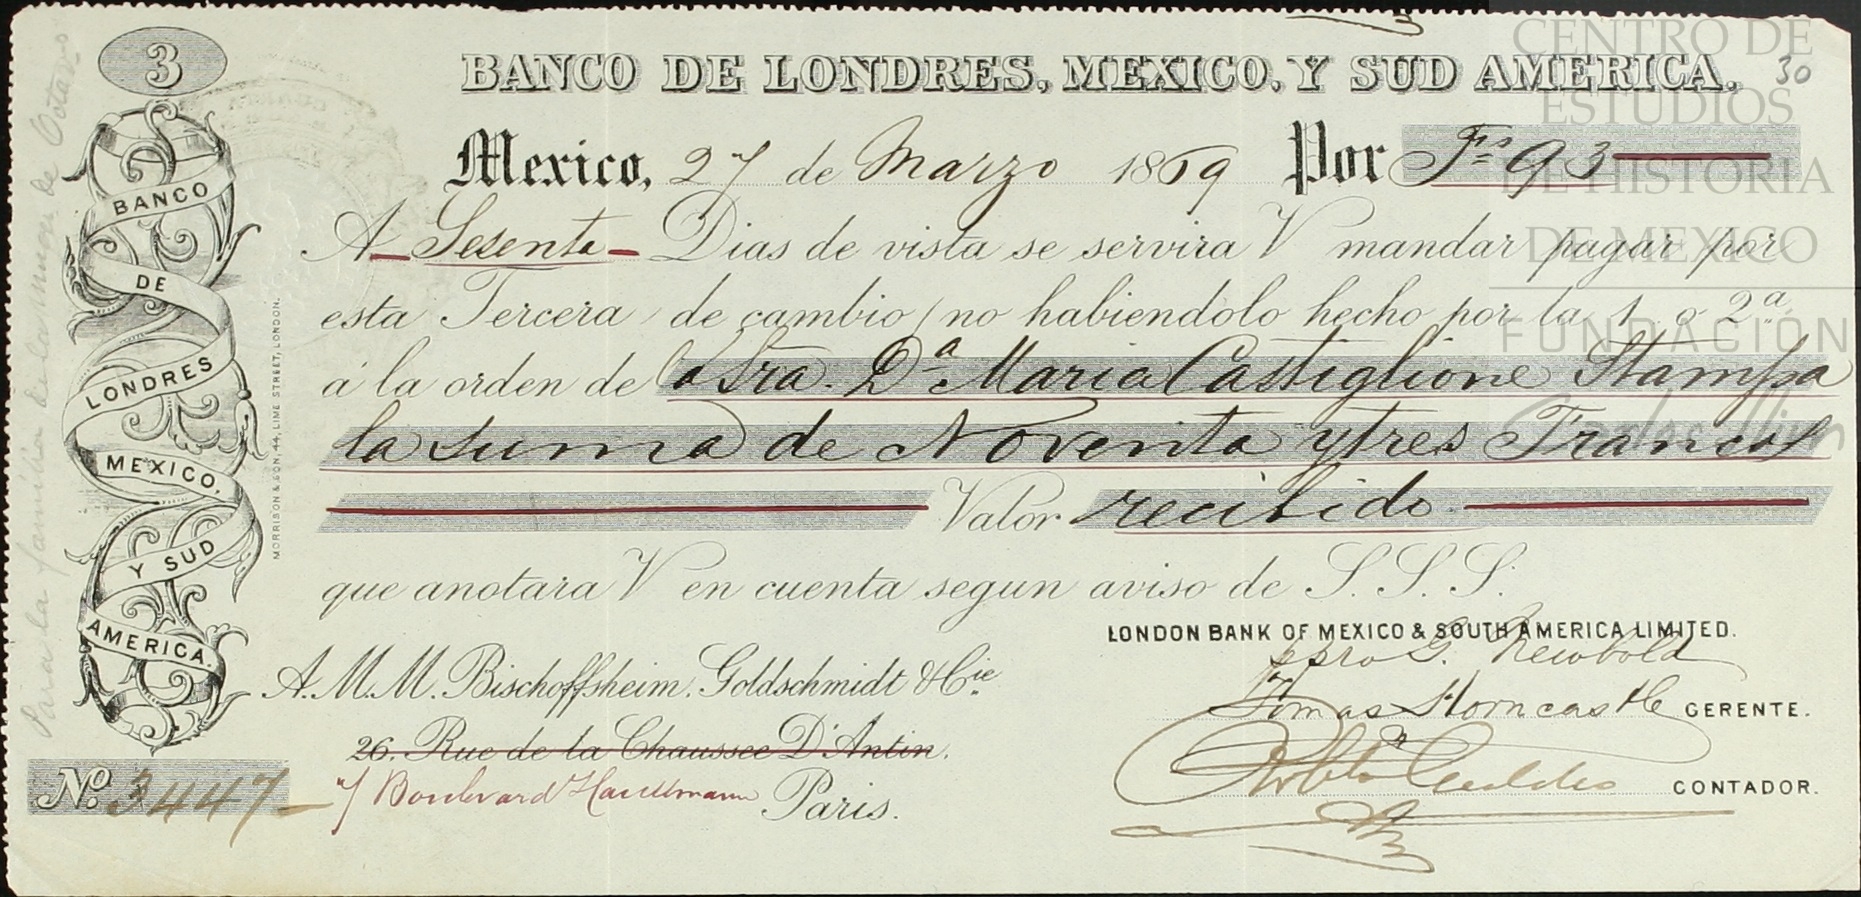 3
BANCO DE LONDRES, MEXICO, Y SUD AMERICA.
30
Mexico, 27 de Marzo 1869 Por Fcs 93
A Sesenta Dias de vista se servira V mandar pagar por
esta Tercera de cambio (no habiendolo hecho por la 1 o 2a
á la orden de la Sra. Da Maria Castiglione Stampa
la suma de Noventa y tres Francos
Valor recibido
que anotara V en cuenta segun aviso de S. S. S.
LONDON BANK OF MEXICO & SOUTH AMERICA LIMITED.
ppro G. Newbold
Thomas Horncastle GERENTE.
CONTADOR.
A. M. M. Bischoffsheim, Goldschmidt & Cie
26. Rue de la Chaussee D'Antin.
7 Boulevard Haussmann Paris.
No. 3447
BANCO
DE
LONDRES
MEXICO,
Y SUD
AMERICA.
MORRISON & SON, 44, LIME STREET, LONDON.
Para la familia de la
CENTRO DE
ESTUDIOS
DE HISTORIA
DE MEXICO
FUNDACIÓN
Carlos Slim